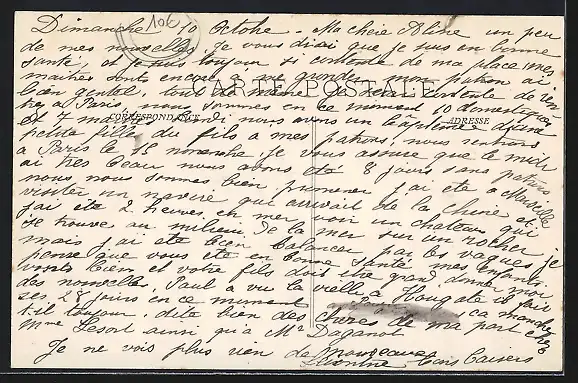 Dimanche 10 Octobre - Ma chère Aline un peu
de mes nouvelles. Je vous dirai que je suis en bonne
santé, et je suis toujour si contente de ma place, mes
maitres sont encore mon patron ai
CARTE POSTALE
bien gentil, tout de même je suis contente de
à Paris, nous sommes en ce moment 10 domestiques
CORRESPONDANCE
ADRESSE
et 7 nous avons un baptème d'une
petite fille du fils a mes patrons, nous rentrons
a Paris le 15 novembre, je vous assure que le midi
ai très beau nous avons été 8 jours sans patrons
nous nous sommes bien promener j'ai été a Marseille
visiter un navire qui arrivait de la chine et
j'ai été 2 heures en mer voir un chateau qui
se trouve au milieu de la mer sur un rocher,
mais j'ai été bien balancer par les vagues, je
pense que vous ete en bonne santé mes enfants
vont bien et votre fils doit etre grand, donner moi
des nouvelles, Paul a vu la vieille a Hougate il fait
ses 28 jours en ce moment ça
t-il toujour, dite bien des choses de ma part chez
Mme Lesort ainsi qu'a Mr Daganot
Je ne vois plus rien de nouveau
bons baisers
10€